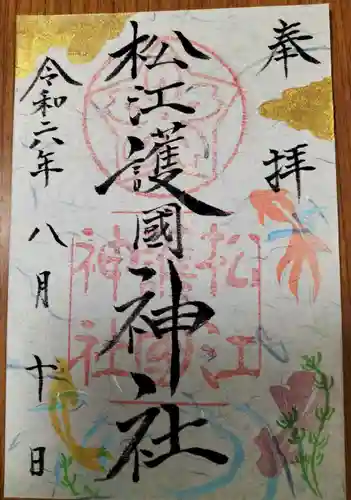 奉拝
松江護國神社
松江護國神社
令和六年八月十日